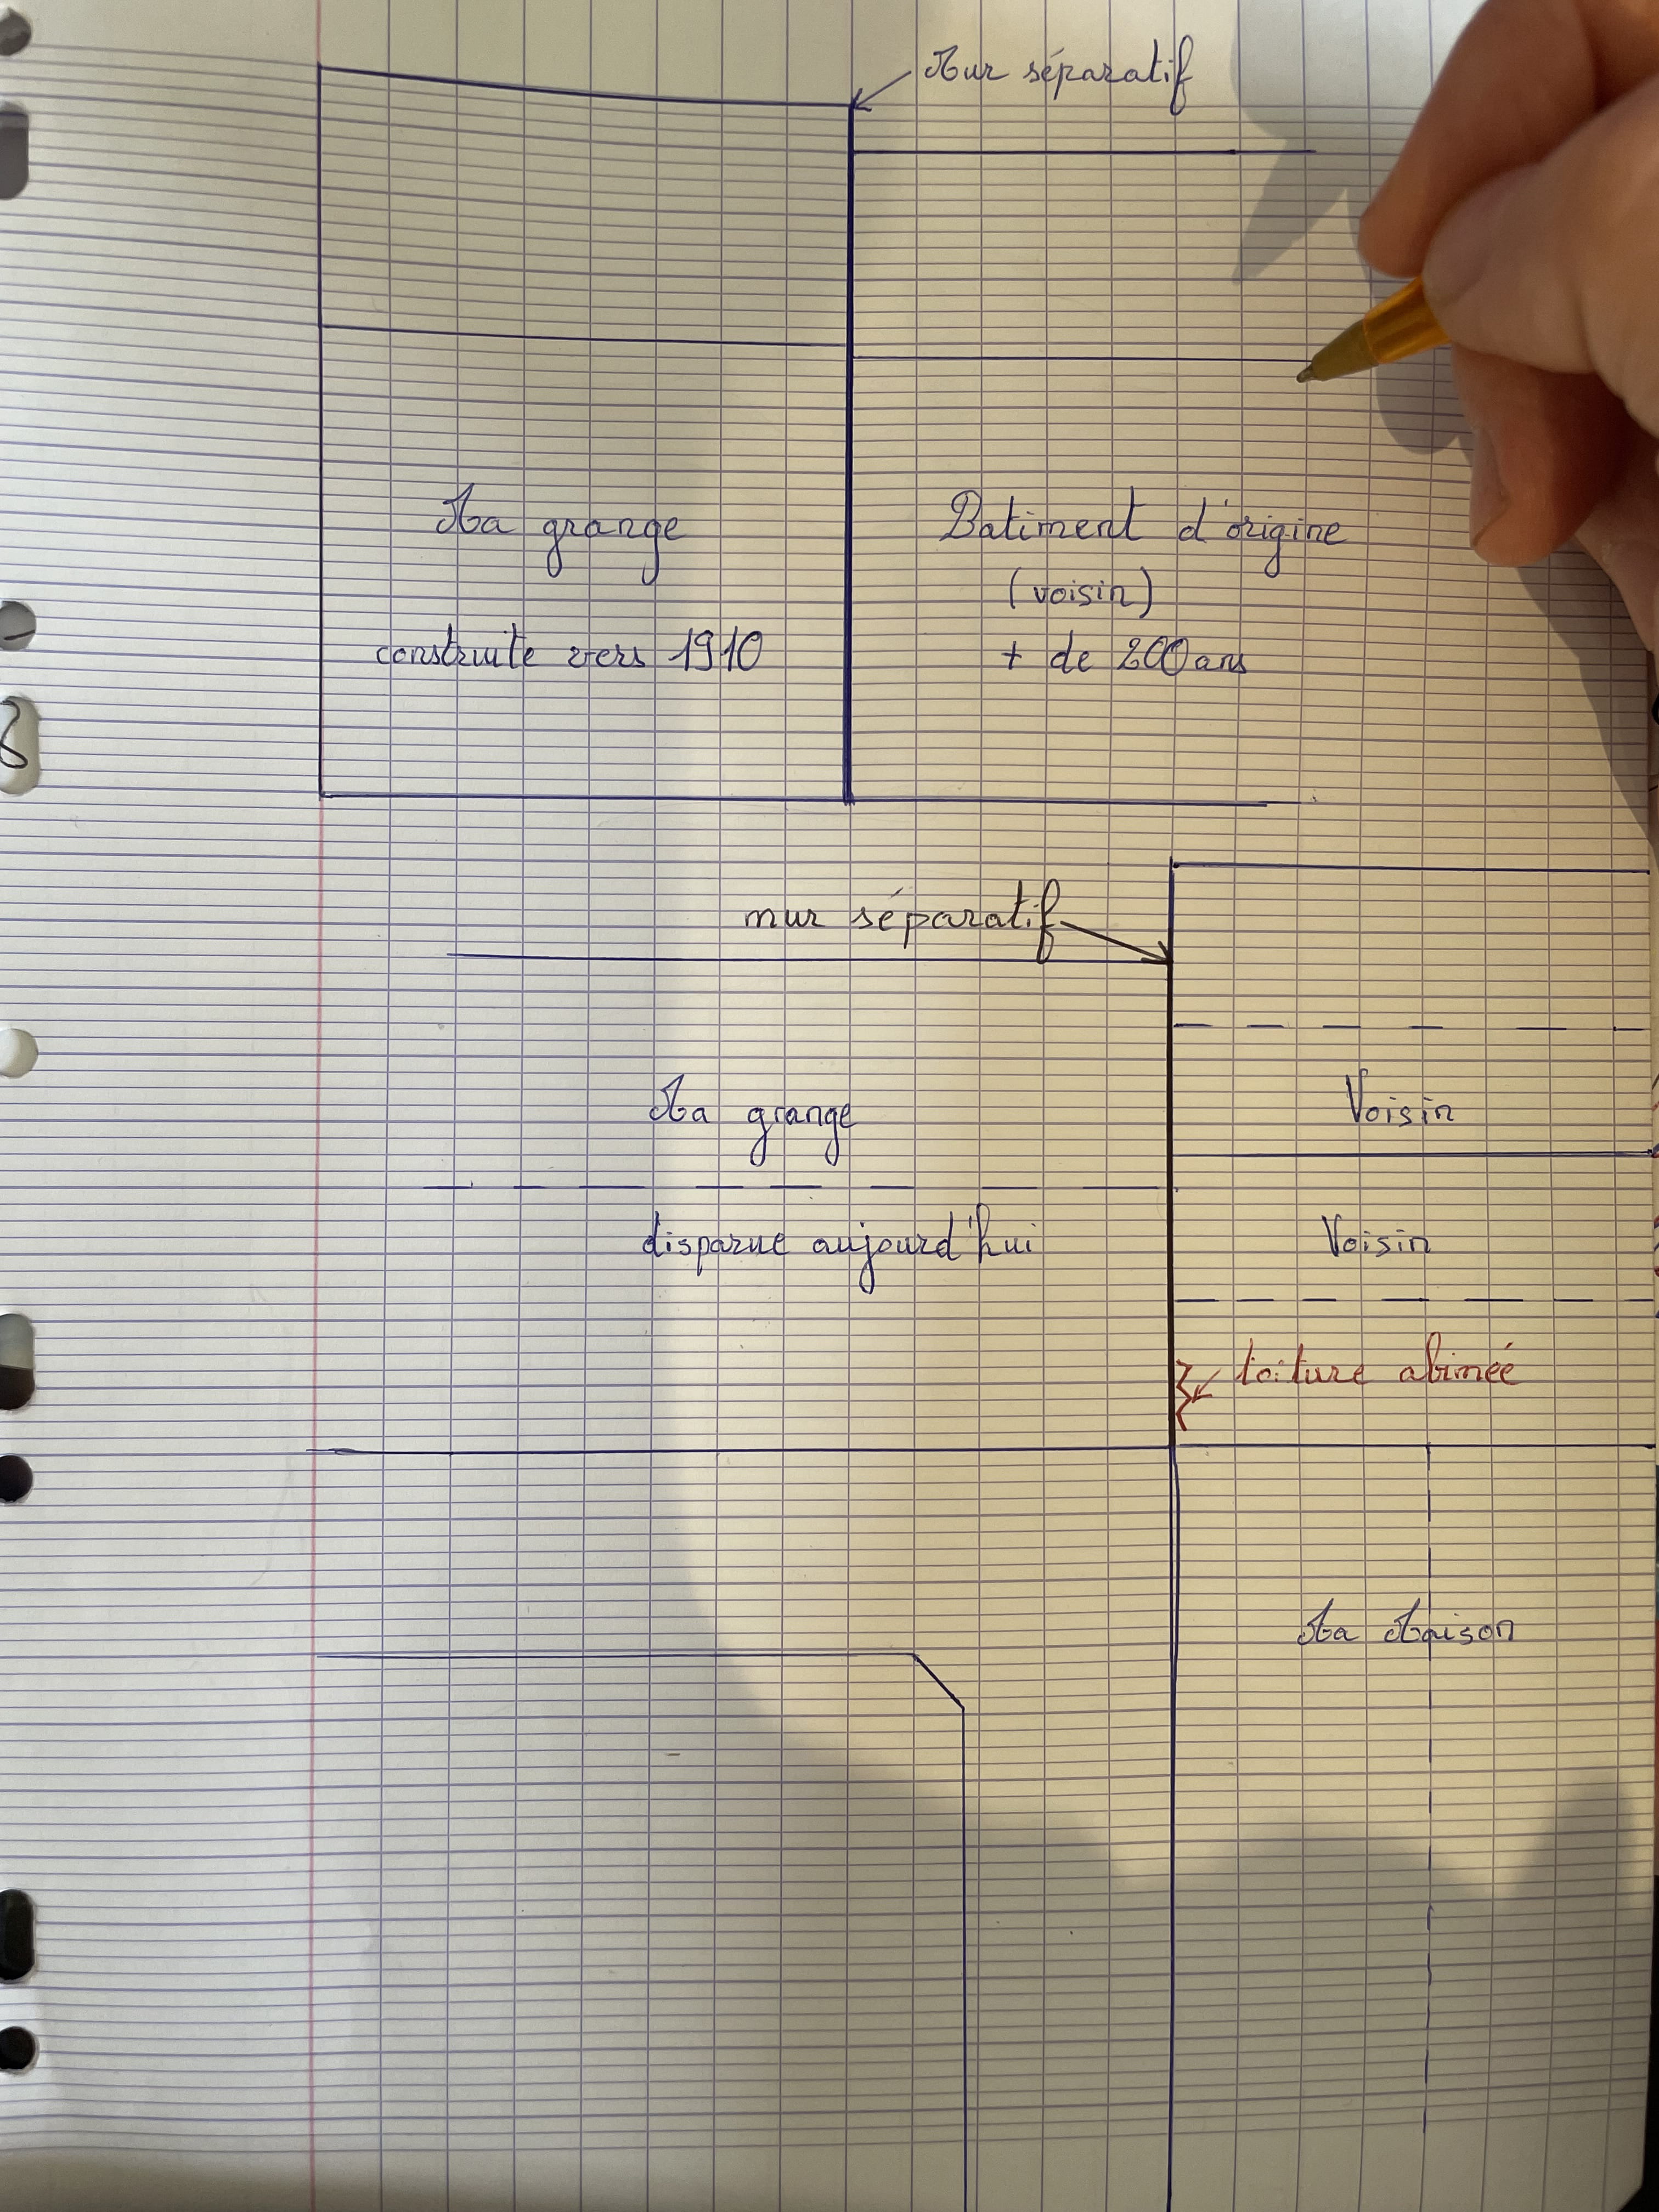 Mur séparatif
Ma grange
construite vers 1910
Batiment d'origine
(voisin)
+ de 200 ans
mur séparatif
Ma grange
disparue aujourd'hui
Voisin
Voisin
toiture abimée
Ma Maison